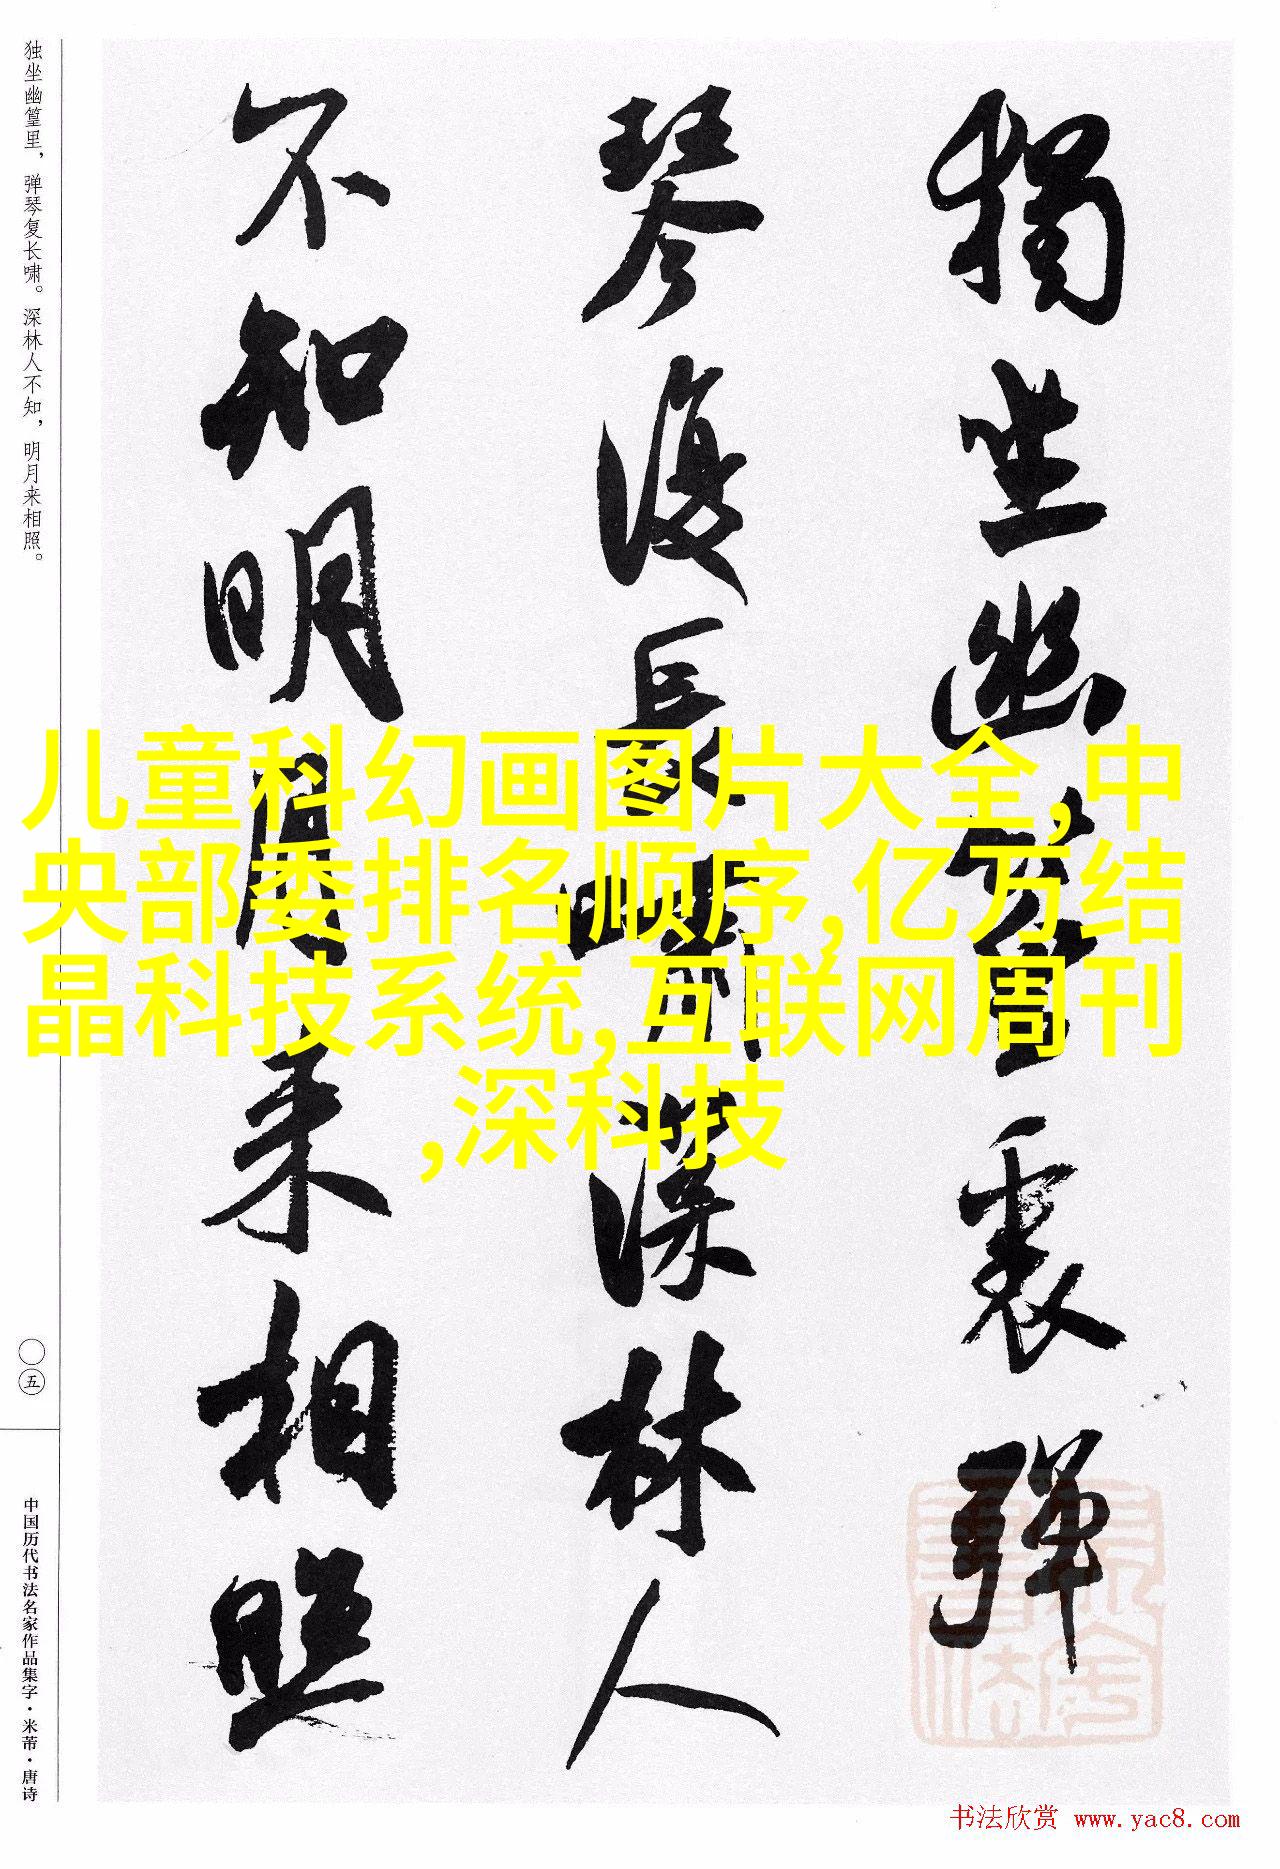 独坐幽篁里，弹琴复长啸。深林人不知，明月来相照。
獨坐幽篁裏彈
琴復長嘯深林人
不知明月来相照
儿童科幻画图片大全,中
央部委排名顺序,亿万结
晶科技系统,互联网周刊
,深科技
〇五
中国历代书法名家作品集字·米芾·唐诗
书法欣赏 www.yac8.com